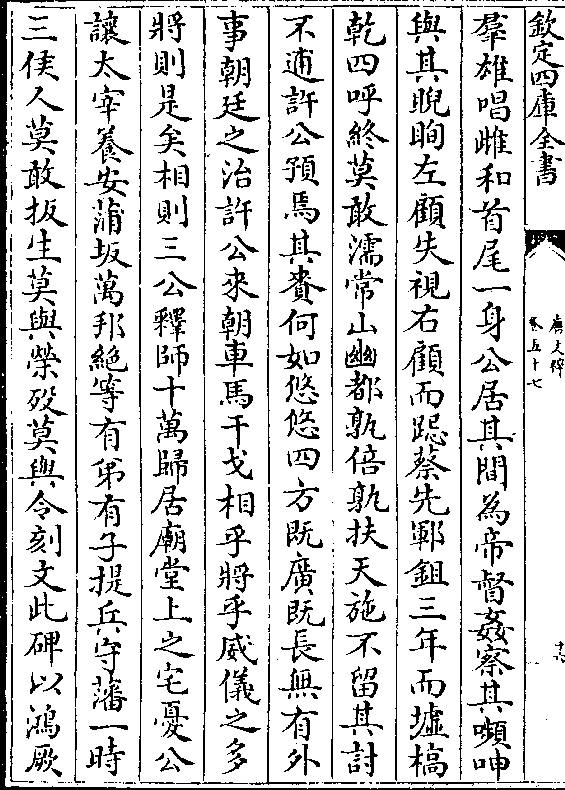 欽定四庫全書
唐文粹
卷五十七
十六
羣雄唱雌和首尾一身公居其間為帝督姦察其嚬呻
與其睨眴左顧失視右顧而跽蔡先鄆鉏三年而墟槁
乾四呼終莫敢濡常山幽都孰倍孰扶天施不留其討
不逋許公預焉其賚何如悠悠四方既廣既長無有外
事朝廷之治許公來朝車馬干戈相乎將乎威儀之多
將則是矣相則三公釋師十萬歸居廟堂上之宅憂公
讓太宰養安蒲坂萬邦絕等有弟有子提兵守藩一時
三侯人莫敢扳生莫與榮歿莫與令刻文此碑以鴻厥